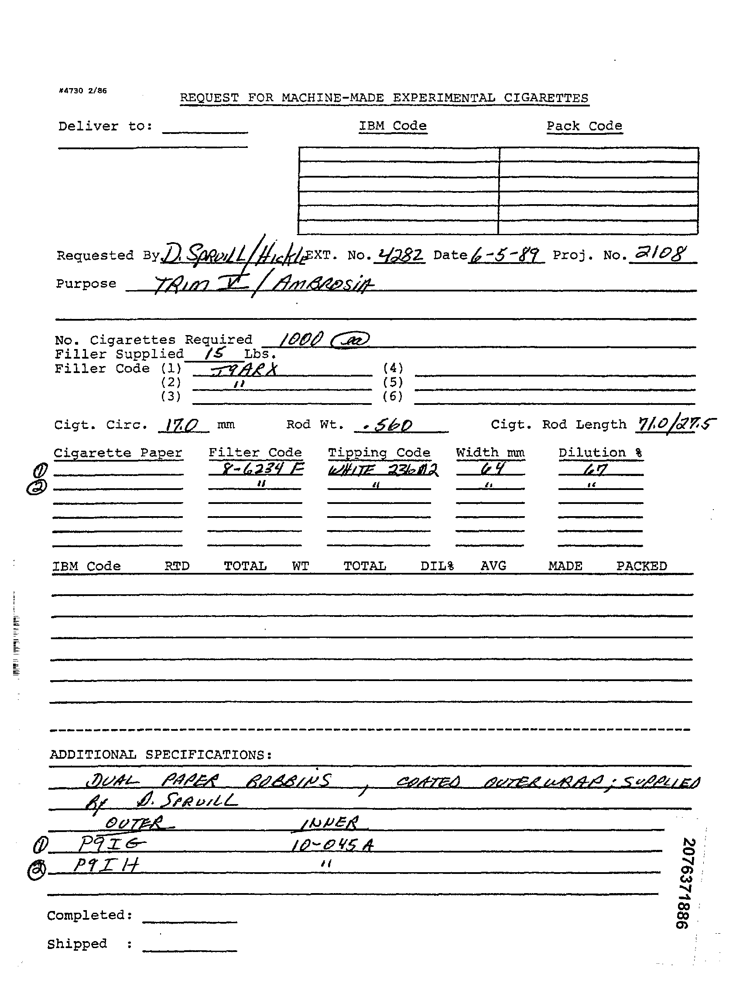 #4730 2/86
REQUEST FOR MACHINE-MADE EXPERIMENTAL CIGARETTES
Deliver to: IBM Code Pack Code
Requested By D. SPRUILL/Hickle EXT. No. 4282 Date 6-5-89 Proj. No. 2108
Purpose TRIM V / AMBROSIA
No. Cigarettes Required 1000 ea
Filler Supplied 15 Lbs.
Filler Code (1) T9ARX (4)
(2) " (5)
(3) (6)
Cigt. Circ. 17.0 mm Rod Wt. .560 Cigt. Rod Length 71.0/27.5
Cigarette Paper Filter Code Tipping Code Width mm Dilution %
① 8-6234 E WHITE 64 67
② " " " "
IBM Code RTD TOTAL WT TOTAL DIL% AVG MADE PACKED
ADDITIONAL SPECIFICATIONS:
DUAL PAPER BOBBINS , COATED OUTERWRAP; SUPPLIED
By D. SPRUILL
OUTER INNER
① P9IG 10-045A
② P9IH "
Completed:
Shipped :
2076371886